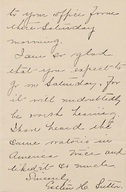 to your office from
there Saturday
morning.
I am so glad
that you expect to
go on Saturday, for
it will undoubtedly
be worth hearing.
I have heard the
same oratorio in
America twice and
liked it so much.
Sincerely,
H. Sutton